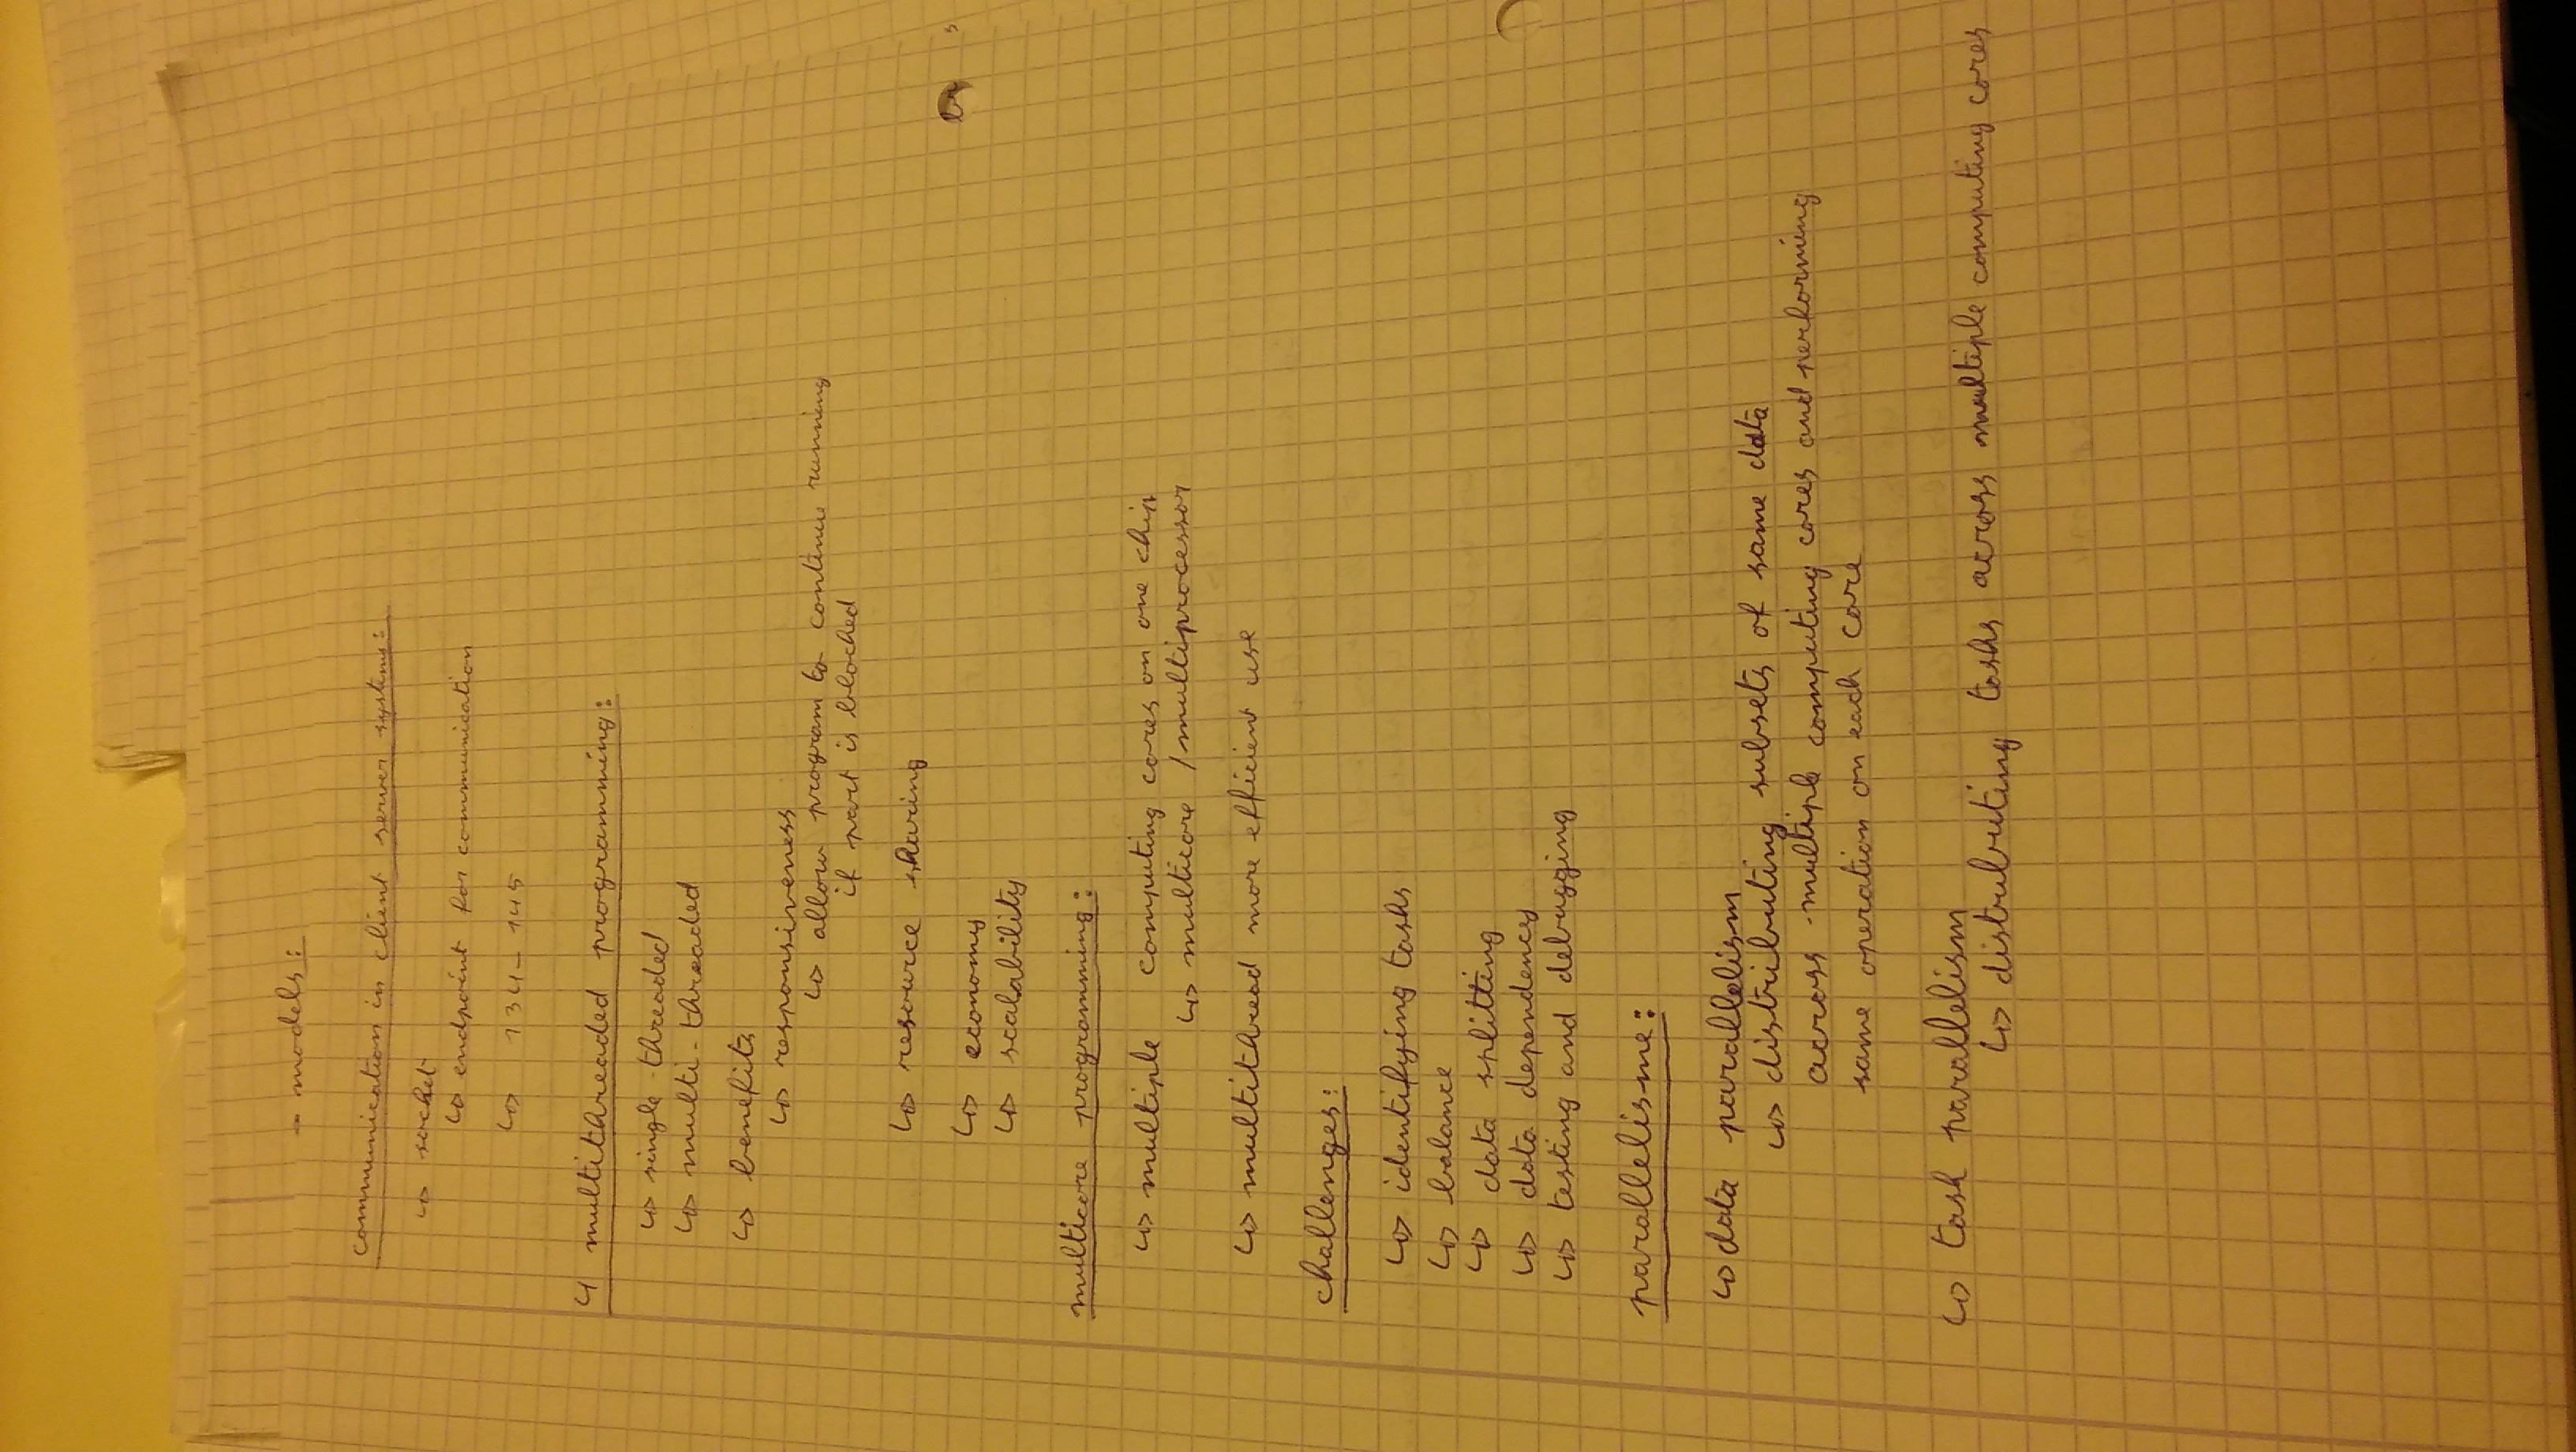 - models:
communication in client server systems:
↳ socket
↳ endpoint for communication
↳ 134-145
4 multithreaded programming:
↳ single threaded
↳ multi-threaded
↳ benefits
↳ responsiveness
↳ allow program to continue running
if part is blocked
↳ resource sharing
↳ economy
↳ scalability
multicore programming:
↳ multiple computing cores on one chip
↳ multicore / multiprocessor
↳ multithread more efficient use
challenges:
↳ identifying tasks
↳ balance
↳ data splitting
↳ data dependency
↳ testing and debugging
parallelisme:
↳ data parallelism
↳ distributing subsets of same data
across multiple computing cores and performing
same operation on each core
↳ task parallelism
↳ distributing tasks across multiple computing cores